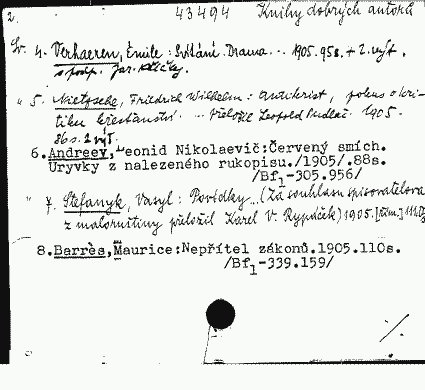 2. 43494 Knihy dobrých autorů
Sv. 4. Verhaeren, Émile: Svítání. Drama ... 1905. 95s. + 2. vyd.
s podp.
" 5. Nietzsche, Friedrich Wilhelm: Antikrist, pokus o kri-
tiku křesťanství ... Přeložil Leopold 1905.
86s. 2 výt.
6. Andreev, Leonid Nikolaevič: Červený smích.
Úryvky z nalezeného rukopisu./1905/.88s.
/Bf1-305.956/
" 7. Stefanyk, Vasyl: Povídky ... (Za souhlasu spisovatelova
z maloruštiny přeložil Karel V. Rypáček) 1905.
8. Barrès, Maurice: Nepřítel zákonů.1905.110s.
/Bf1-339.159/